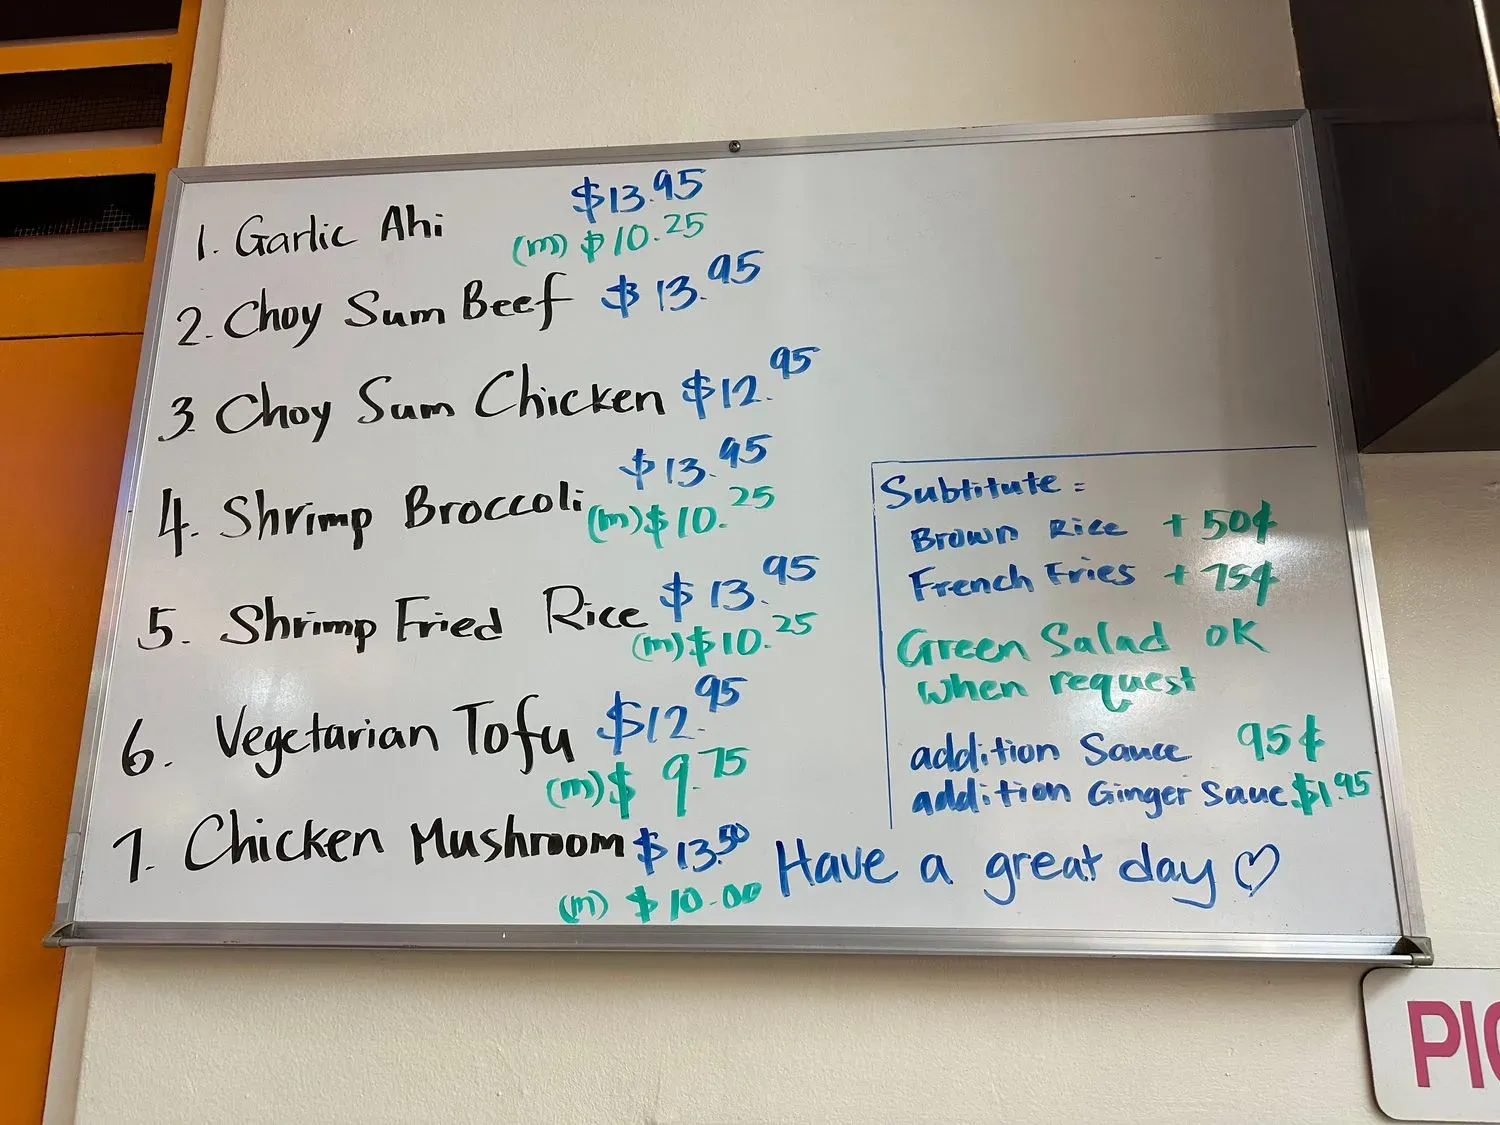 1. Garlic Ahi $13.95
(m) $10.25
2. Choy Sum Beef $13.95
3 Choy Sum Chicken $12.95
4. Shrimp Broccoli $13.95
(m) $10.25
5. Shrimp Fried Rice $13.95
(m) $10.25
6. Vegetarian Tofu $12.95
(m) $9.75
7. Chicken Mushroom $13.50
(m) $10.00
Subtitute:
Brown Rice + 50¢
French Fries + 75¢
Green Salad OK
when request
addition Sauce 95¢
addition Ginger Sauc $1.95
Have a great day ♡